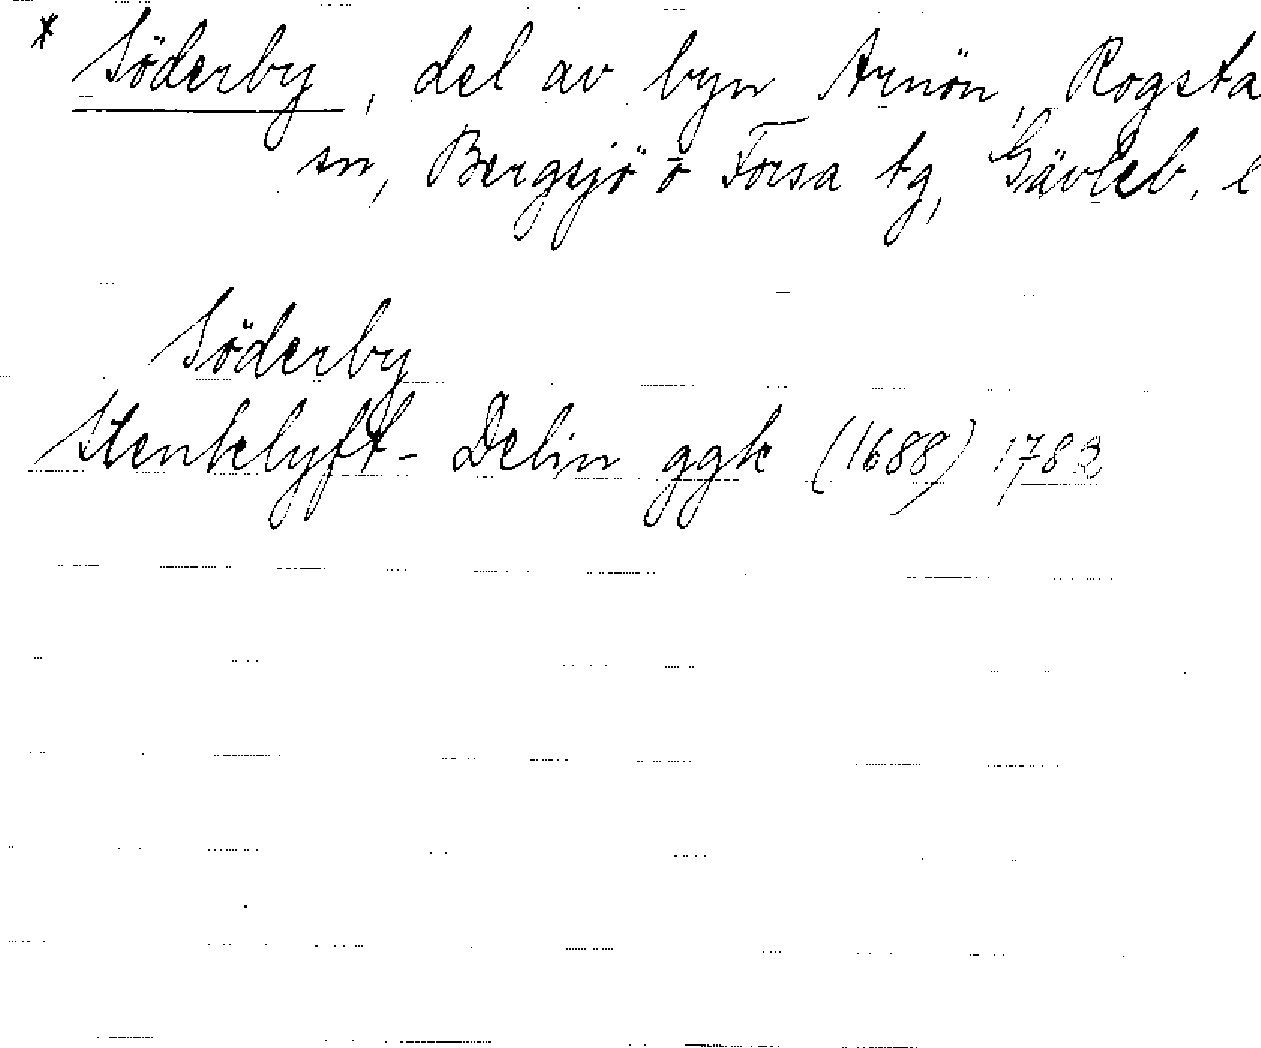 * Söderby, del av byn Arnön, Rogsta
sn, Bergsjö o Forsa tg, Gävleb. l
Söderby
Stenklyft- Delin ggk (1688) 1783